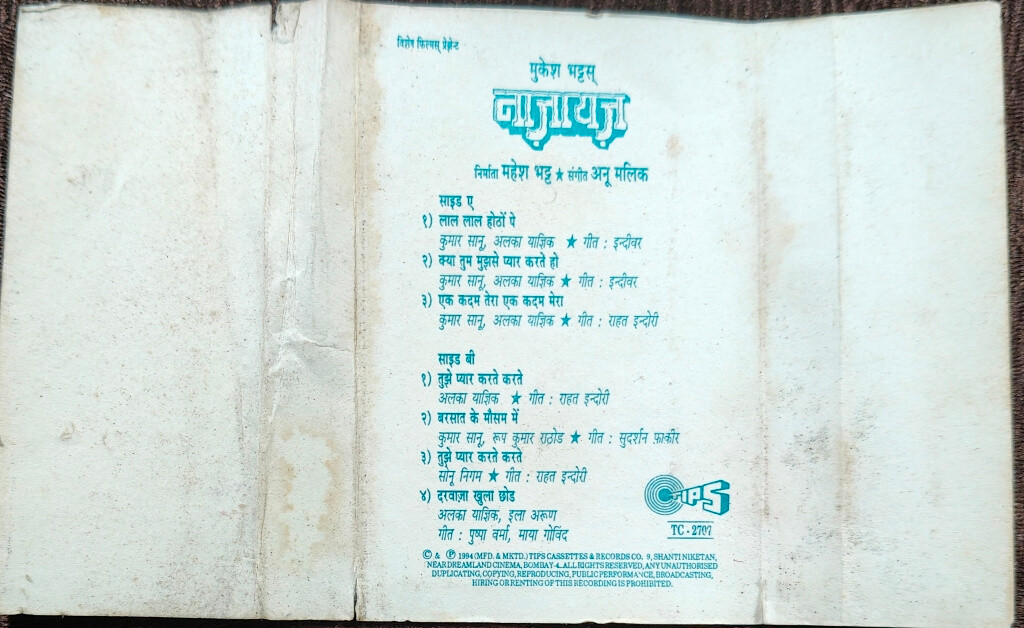 विशेष फिल्मस् प्रेझेन्ट
मुकेश भट्टस्
नाज़ायज़
निर्माता महेश भट्ट ★ संगीत अनू मलिक
साइड ए
१) लाल लाल होठों पे
कुमार सानू, अलका याज्ञिक ★ गीत : इन्दीवर
२) क्या तुम मुझसे प्यार करते हो
कुमार सानू, अलका याज्ञिक ★ गीत : इन्दीवर
३) एक कदम तेरा एक कदम मेरा
कुमार सानू, अलका याज्ञिक ★ गीत : राहत इन्दोरी
साइड बी
१) तुझे प्यार करते करते
अलका याज्ञिक ★ गीत : राहत इन्दोरी
२) बरसात के मौसम में
कुमार सानू, रूप कुमार राठोड ★ गीत : सुदर्शन फ़ाकीर
३) तुझे प्यार करते करते
सोनू निगम ★ गीत : राहत इन्दोरी
४) दरवाज़ा खुला छोड
अलका याज्ञिक, इला अरूण
गीत : पुष्पा वर्मा, माया गोविंद
TIPS
TC-2707
© & ℗ 1994 (MFD. & MKTD.) TIPS CASSETTES & RECORDS CO. 9, SHANTI NIKETAN,
NEAR DREAMLAND CINEMA, BOMBAY-4. ALL RIGHTS RESERVED, ANY UNAUTHORISED
DUPLICATING, COPYING, REPRODUCING, PUBLIC PERFORMANCE, BROADCASTING,
HIRING OR RENTING OF THIS RECORDING IS PROHIBITED.